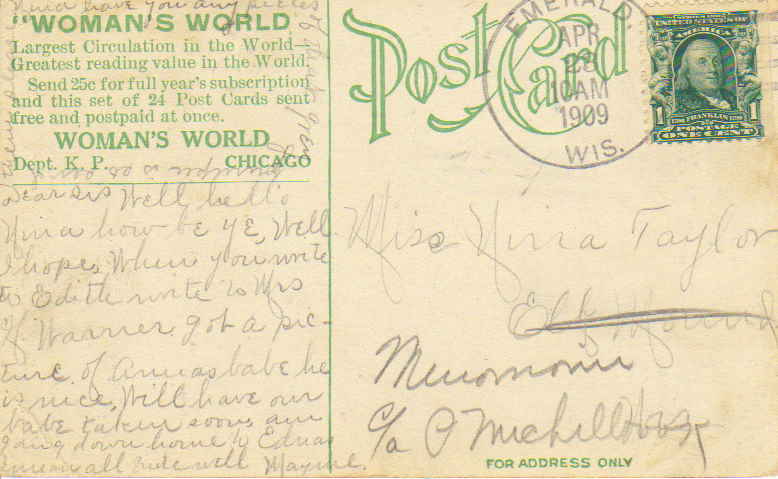 Nina have you any pieces
of that gre
"WOMAN'S WORLD
Largest Circulation in the World—
Greatest reading value in the World.
Send 25c for full year's subscription
and this set of 24 Post Cards sent
free and postpaid at once.
WOMAN'S WORLD
Dept. K. P. CHICAGO
Dear Sis Well hello
Nina how be ye, Well
I hope, When you write
to Edith write to Mrs
Warner got a pic-
ture of Annas babe he
is nice, Will have our
babe taken soon, am
going down home to Ednas
all write well Mayme.
Post Card
EMERALD
APR
23
10AM
1909
WIS.
UNITED STATES OF
AMERICA
FRANKLIN
POSTAGE
1 ONE CENT 1
Miss Nina Taylor
Elk Mound
Menomonie
c/o
FOR ADDRESS ONLY